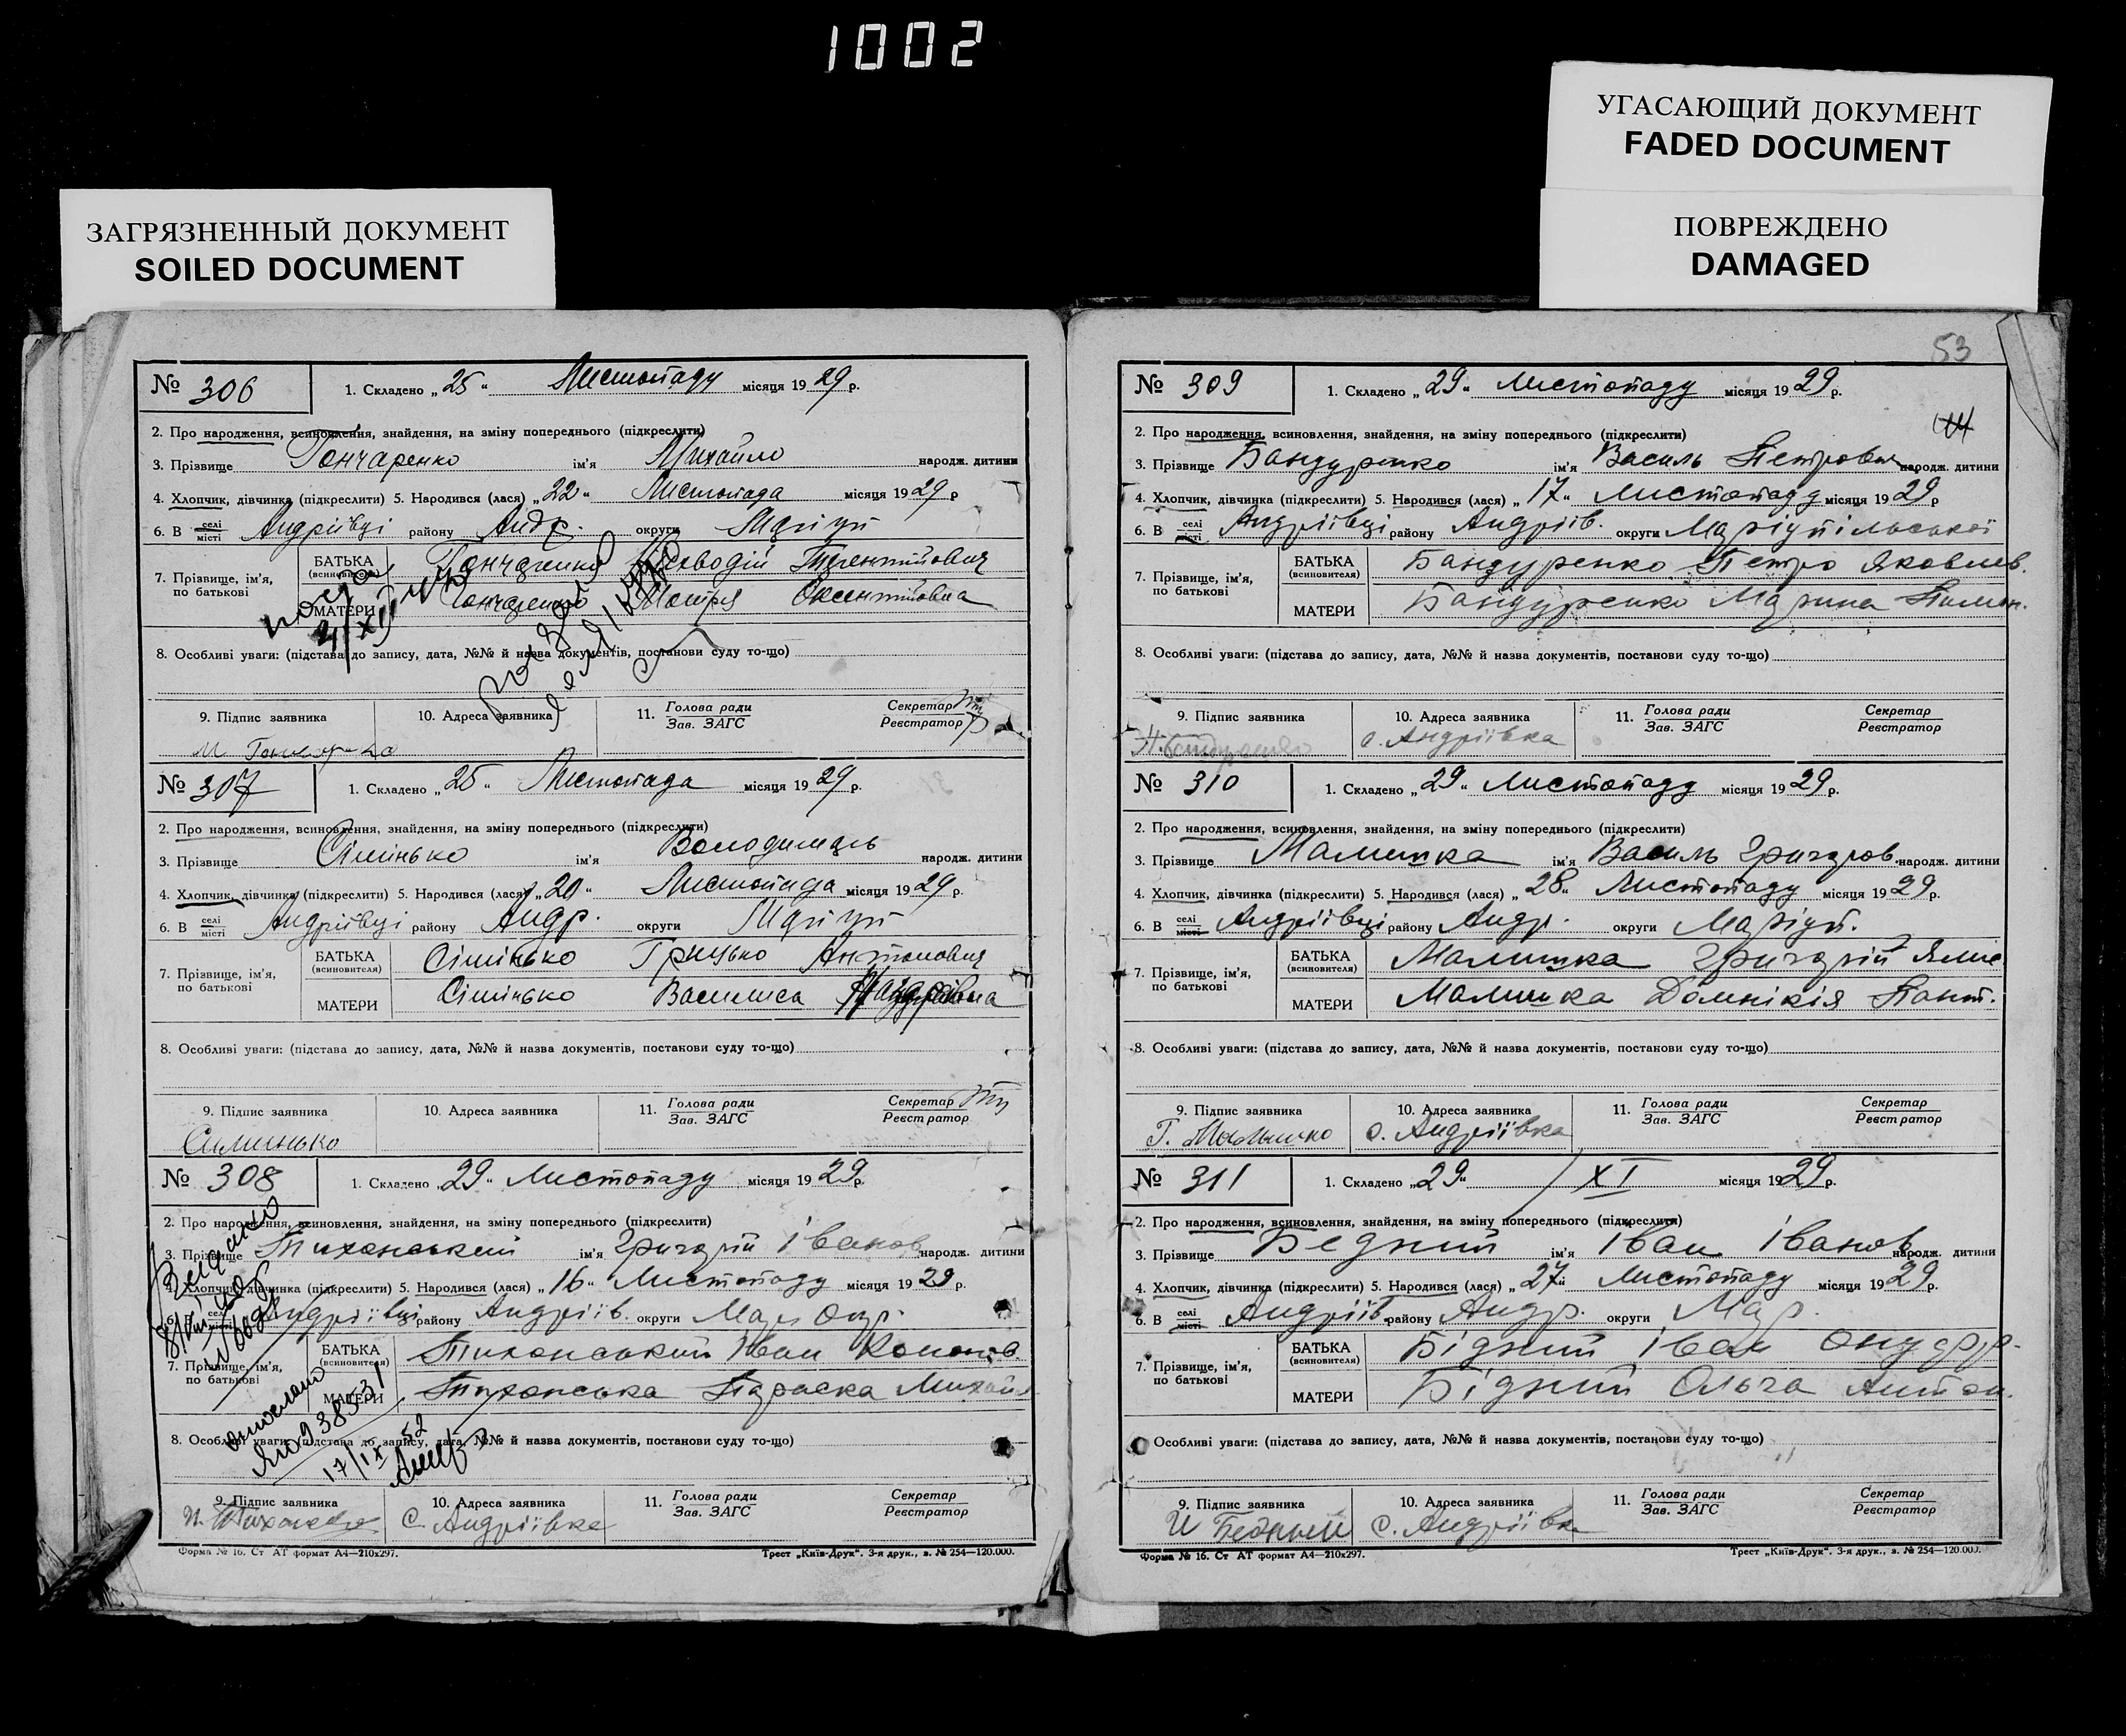 1002
УГАСАЮЩИЙ ДОКУМЕНТ
FADED DOCUMENT
ЗАГРЯЗНЕННЫЙ ДОКУМЕНТ
SOILED DOCUMENT
ПОВРЕЖДЕНО
DAMAGED
№ 306 1. Складено „25" Листопаду місяця 1929 р.
2. Про народження, всиновлення, знайдення, на зміну попереднього (підкреслити)
3. Прізвище Гончаренко ім'я Михайло народж. дитини
4. Хлопчик, дівчинка (підкреслити) 5. Народився (лася) „22" Листопада місяця 1929 р
6. В селі місті Андріївці району Андр. округи Маріуп
7. Прізвище, ім'я, по батькові
БАТЬКА (всиновителя) Гончаренко
МАТЕРИ Гончаренко Оксентіївна
8. Особливі уваги: (підстава до запису, дата, №№ й назва документів, постанови суду то-що)
9. Підпис заявника 10. Адреса заявника 11. Голова ради Зав. ЗАГС Секретар Реєстратор
№ 307 1. Складено „25" Листопада місяця 1929 р.
2. Про народження, всиновлення, знайдення, на зміну попереднього (підкреслити)
3. Прізвище Сімінько ім'я Володимирь народж. дитини
4. Хлопчик, дівчинка (підкреслити) 5. Народився (лася) „20" Листопада місяця 1929 р.
6. В селі місті Андріївці району Андр. округи Маріуп
7. Прізвище, ім'я, по батькові
БАТЬКА (всиновителя) Сімінько Грицько Антонович
МАТЕРИ Сімінько Василиса
8. Особливі уваги: (підстава до запису, дата, №№ й назва документів, постанови суду то-що)
9. Підпис заявника 10. Адреса заявника 11. Голова ради Зав. ЗАГС Секретар Реєстратор
Симинько
№ 308 1. Складено „29" Листопаду місяця 1929 р.
2. Про народження, всиновлення, знайдення, на зміну попереднього (підкреслити)
3. Прізвище Тихонський ім'я Григорій Іванов народж. дитини
4. Хлопчик, дівчинка (підкреслити) 5. Народився (лася) „16" Листопаду місяця 1929 р.
6. В селі Андріївці району Андріїв. округи Мар. окр.
7. Прізвище, ім'я, по батькові
БАТЬКА (всиновителя) Тихонський Іван Конон.
МАТЕРИ Тихонська Параска Михайл
8. Особливі уваги: (підстава до запису, дата, №№ й назва документів, постанови суду то-що)
9. Підпис заявника 10. Адреса заявника 11. Голова ради Зав. ЗАГС Секретар Реєстратор
с. Андріївка
Форма № 16. Ст АТ формат А4—210x297. Трест „Київ-Друк". 3-я друк., з. № 254—120.000.
53
№ 309 1. Складено „29" Листопаду місяця 1929 р.
2. Про народження, всиновлення, знайдення, на зміну попереднього (підкреслити)
3. Прізвище Бандуренко ім'я Василь Петрович народж. дитини
4. Хлопчик, дівчинка (підкреслити) 5. Народився (лася) „17" Листопаду місяця 1929 р
6. В селі місті Андріївці району Андріїв. округи Маріупільської
7. Прізвище, ім'я, по батькові
БАТЬКА (всиновителя) Бандуренко Петро Яковлев.
МАТЕРИ Бандуренко Марина Пимон.
8. Особливі уваги: (підстава до запису, дата, №№ й назва документів, постанови суду то-що)
9. Підпис заявника 10. Адреса заявника 11. Голова ради Зав. ЗАГС Секретар Реєстратор
с. Андріївка
№ 310 1. Складено „29" Листопаду місяця 1929 р.
2. Про народження, всиновлення, знайдення, на зміну попереднього (підкреслити)
3. Прізвище Малишка ім'я Василь Григоров. народж. дитини
4. Хлопчик, дівчинка (підкреслити) 5. Народився (лася) „28" Листопаду місяця 1929 р.
6. В селі місті Андріївці району Андр. округи Маріуп.
7. Прізвище, ім'я, по батькові
БАТЬКА (всиновителя) Малишка Григорій
МАТЕРИ Малишка Домнікія Пант.
8. Особливі уваги: (підстава до запису, дата, №№ й назва документів, постанови суду то-що)
9. Підпис заявника 10. Адреса заявника 11. Голова ради Зав. ЗАГС Секретар Реєстратор
Г. Малышко с. Андріївка
№ 311 1. Складено „29" / XI місяця 1929 р.
2. Про народження, всиновлення, знайдення, на зміну попереднього (підкреслити)
3. Прізвище Бедний ім'я Іван Іванов народж. дитини
4. Хлопчик, дівчинка (підкреслити) 5. Народився (лася) „27" Листопаду місяця 1929 р.
6. В селі місті Андріїв. району Андр. округи Мар.
7. Прізвище, ім'я, по батькові
БАТЬКА (всиновителя) Бідний Іван Онуфр.
МАТЕРИ Бідний Ольга Антон.
Особливі уваги: (підстава до запису, дата, №№ й назва документів, постанови суду то-що)
9. Підпис заявника 10. Адреса заявника 11. Голова ради Зав. ЗАГС Секретар Реєстратор
И Бедный с. Андріївка
Форма № 16. Ст АТ формат А4—210x297. Трест „Київ-Друк". 3-я друк., з. № 254—120.000.